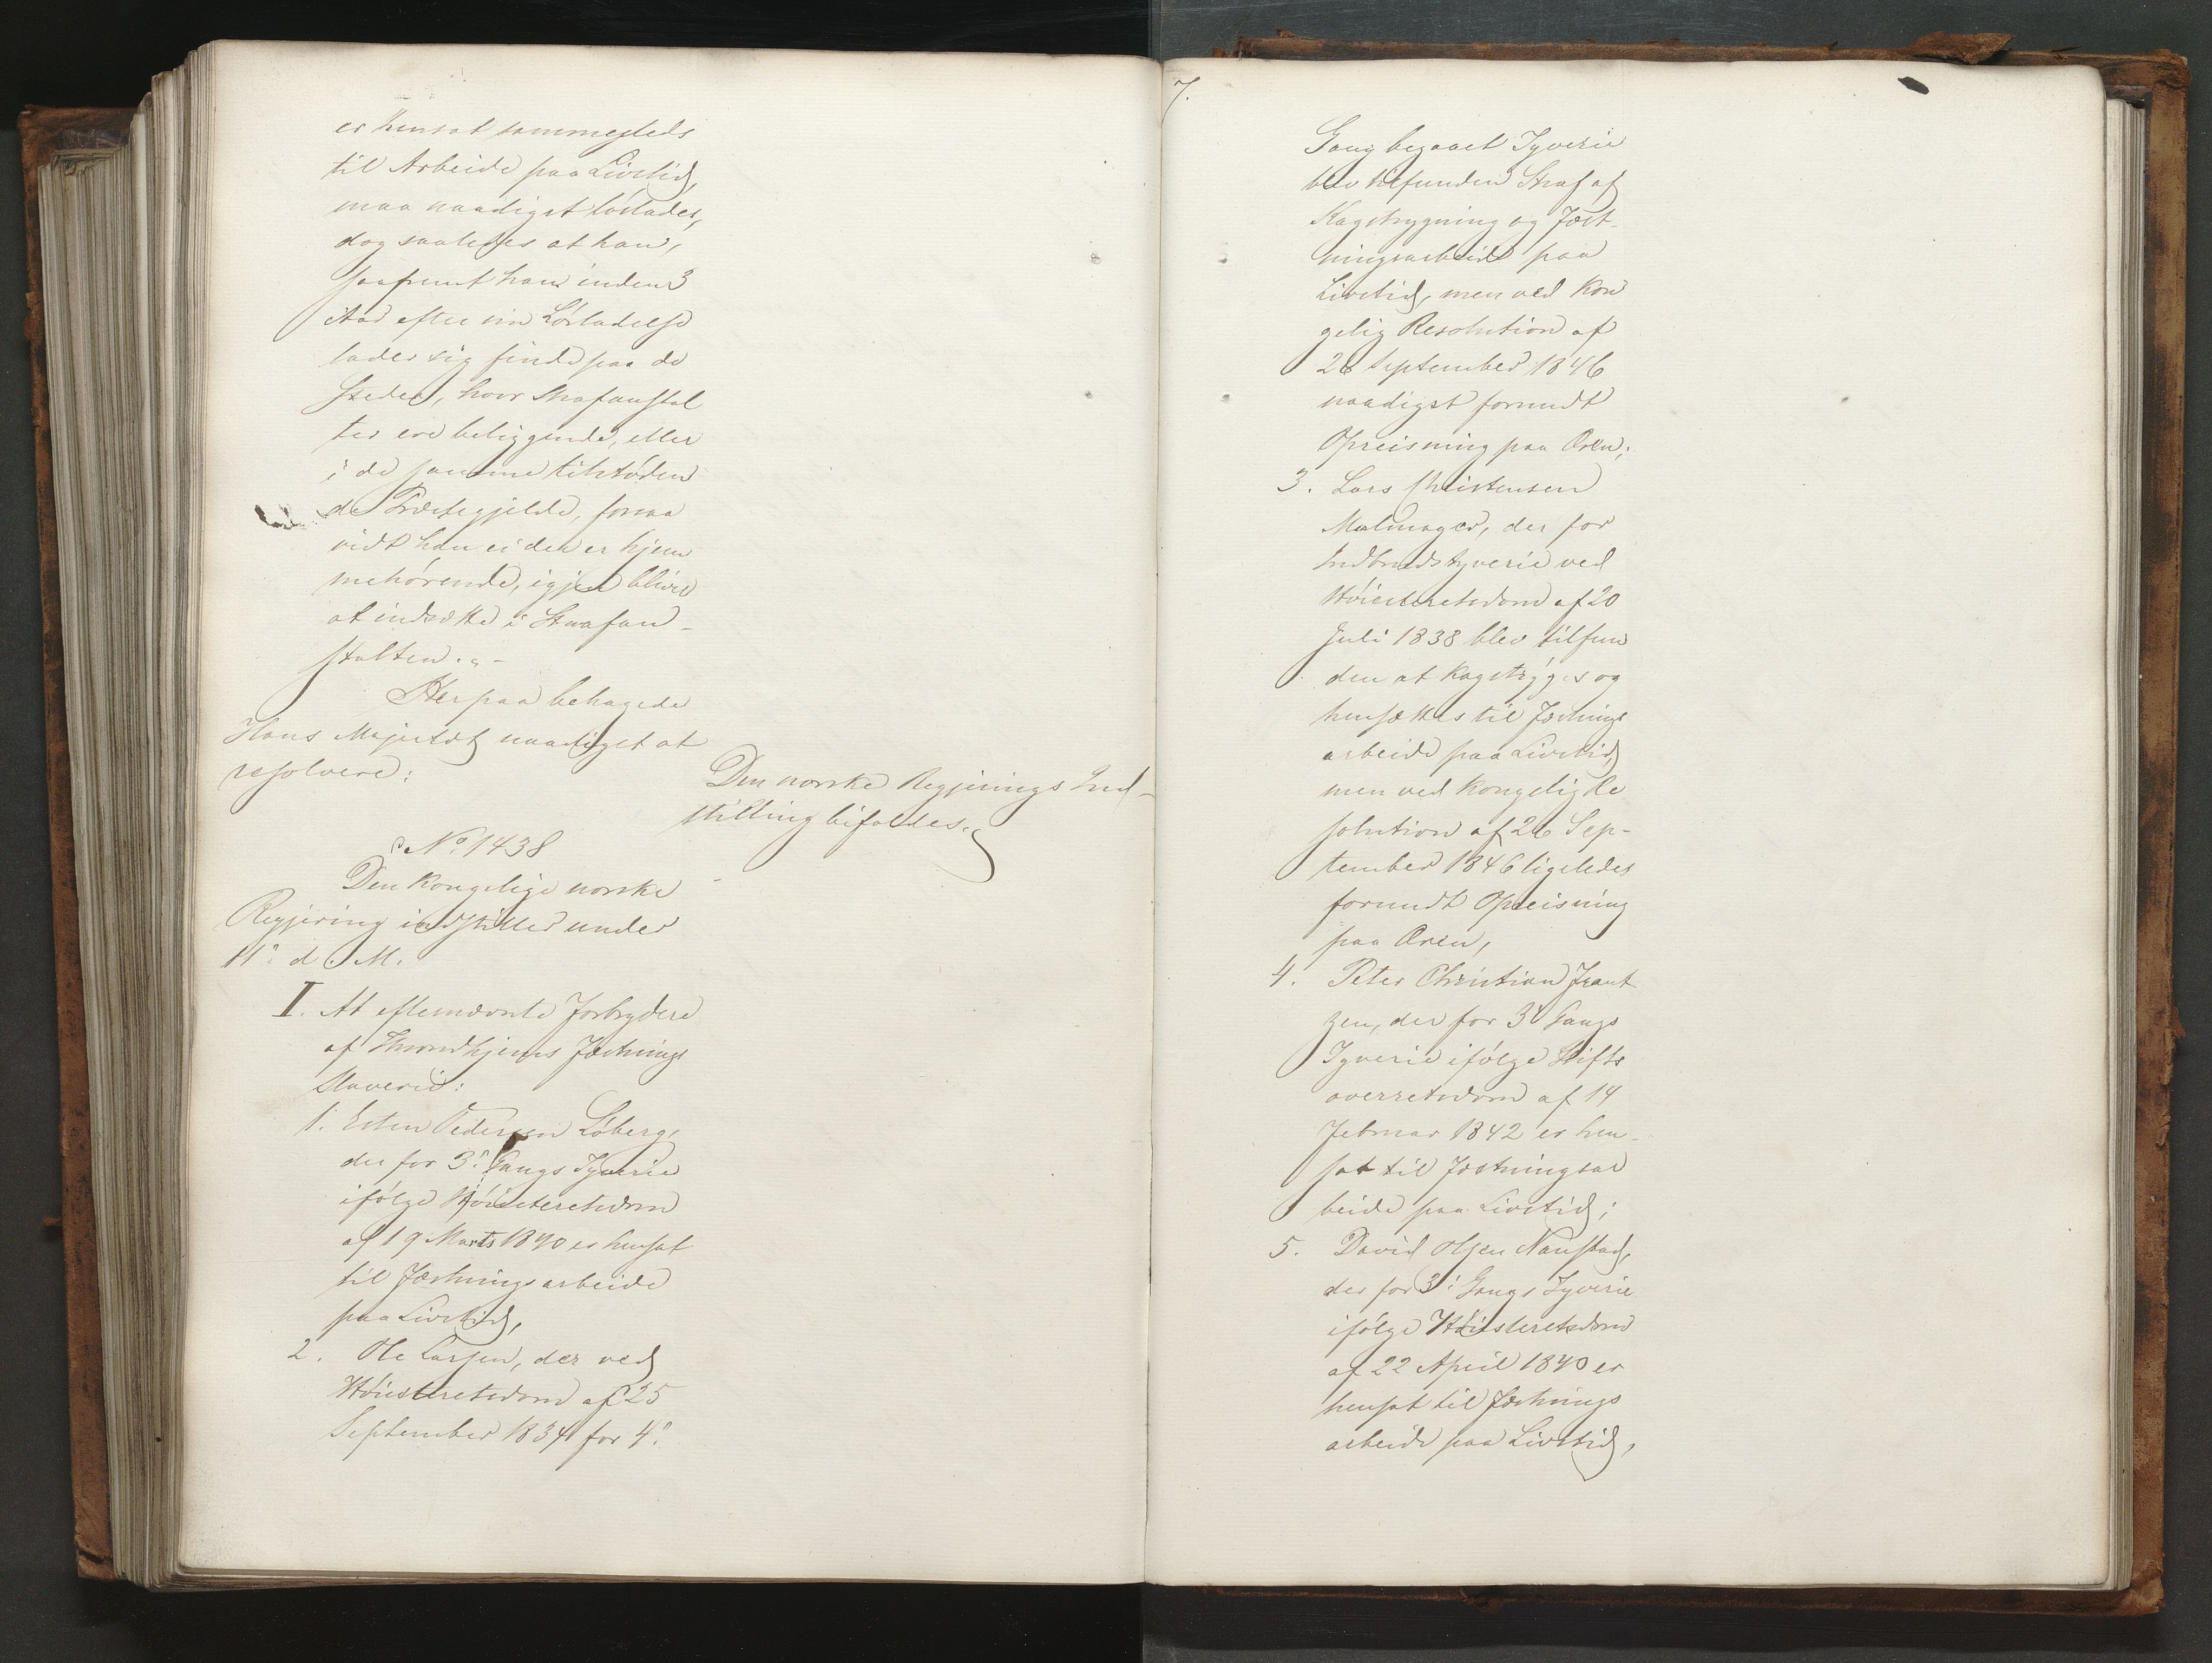 er hensat sammesteds
til Arbeide paa Livstid,
maa naadigst løslades,
dog saaledes at han,
saafremt han inden 3
Aar efter sin Løsladelse
lader sig finde paa de
Steder, hvor Strafanstal
ter ere beliggende, eller
i de samme tilstøden
de Præstegjelde, forsaa
vidt han ei der er hjem
mehørende, igjen bliver
at indsætte i Strafan-
stalten.
Herpaa behagede
Hans Majestæt naadigst at
resolvere:
Den norske Regjerings Ind-
stilling bifaldes.
No 1438
Den Kongelige norske
Regjering indstiller under
11: d. M.
I. At eftermævnte Forbrydere
af Throndhjems Fæstnings
Slaverie:
1. Esten Pedersen Løberg,
der for 3: Gangs Tyverie
ifølge Høiesteretsdom
af 19 Marts 1840 er hensat
til Fæstningsarbeide
paa Livstid,
2. Ole Larsen, der ved
Høiesteretsdom af 25
September 1834 for 4:
7.
Gang begaaet Tyverie
blev tilfunden Straf af
Kagstrygning og Fæst-
ningsarbeide paa
Livstid, men ved Kon
gelig Resolution af
26 September 1846
naadigst forundt
Opreisning paa Æren;
3. Lars Christensen
Malmager, der for
Indbrudstyverie ved
Høiesteretsdom af 20
Juli 1838 blev tilfun
den at kagstryges og
hensættes til Fæstnings
arbeide paa Livstid,
men ved Kongelig Re
solution af 26 Sep-
tember 1846 ligeledes
forundt Opreisning
paa Æren,
4. Peter Christian Frant
zen, der for 3: Gangs
Tyverie ifølge Stifts
overretsdom af 14
Februar 1842 er hen-
sat til Fæstningsar
beide paa Livstid;
5. David Olsen Naustad,
der for 3: Gangs Tyverie
ifølge Høiesteretsdom
af 22 April 1840 er
hensat til Fæstnings
arbeide paa Livstid,